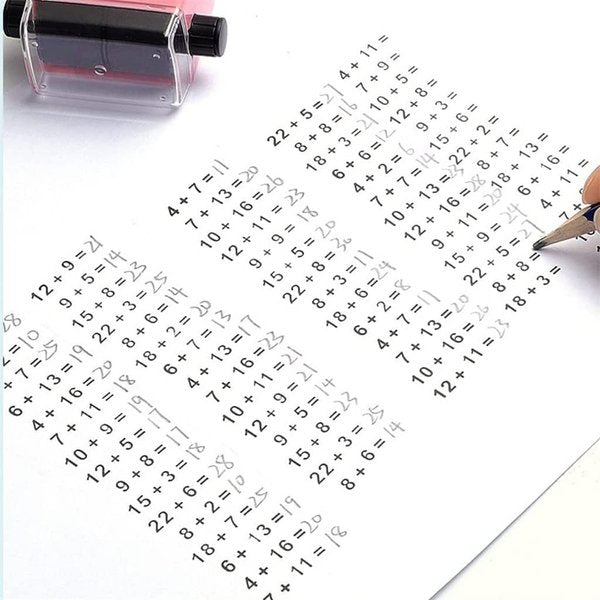 4 + 11 =
7 + 9 =
10 + 5 =
12 + 8 =
9 + 3 =
15 + 6 =
22 + 2 =
8 + 7 =
18 + 13 =
6 + 16 =
4 + 11 =
22 + 5 = 27
8 + 8 = 16
18 + 3 = 21
6 + 6 = 12
4 + 2 = 6
7 + 7 = 14
10 + 13 = 23
12 + 16 = 28
9 + 11 = 20
15 + 9 = 24
22 + 5 = 27
8 + 8 =
18 + 3 =
4 + 7 = 11
7 + 13 = 20
10 + 16 = 26
12 + 11 = 23
9 + 9 = 18
15 + 5 = 20
22 + 8 = 30
8 + 3 = 11
18 + 6 = 24
6 + 2 = 8
4 + 7 = 11
7 + 13 = 20
10 + 16 = 26
12 + 11 = 23
12 + 9 = 21
9 + 5 = 14
15 + 8 = 23
22 + 3 = 25
8 + 6 = 14
18 + 2 = 20
6 + 7 = 13
4 + 13 = 17
7 + 16 = 23
10 + 11 = 21
12 + 9 = 21
9 + 5 = 14
15 + 8 = 23
22 + 3 = 25
8 + 6 = 14
28
= 10
+ 7 = 25
6 + 13 = 19
4 + 16 = 20
7 + 11 = 18
10 + 9 = 19
12 + 5 = 17
9 + 8 = 17
15 + 3 = 18
22 + 6 = 28
8 + 2 = 10
18 + 7 = 25
6 + 13 = 19
4 + 16 = 20
7 + 11 = 18